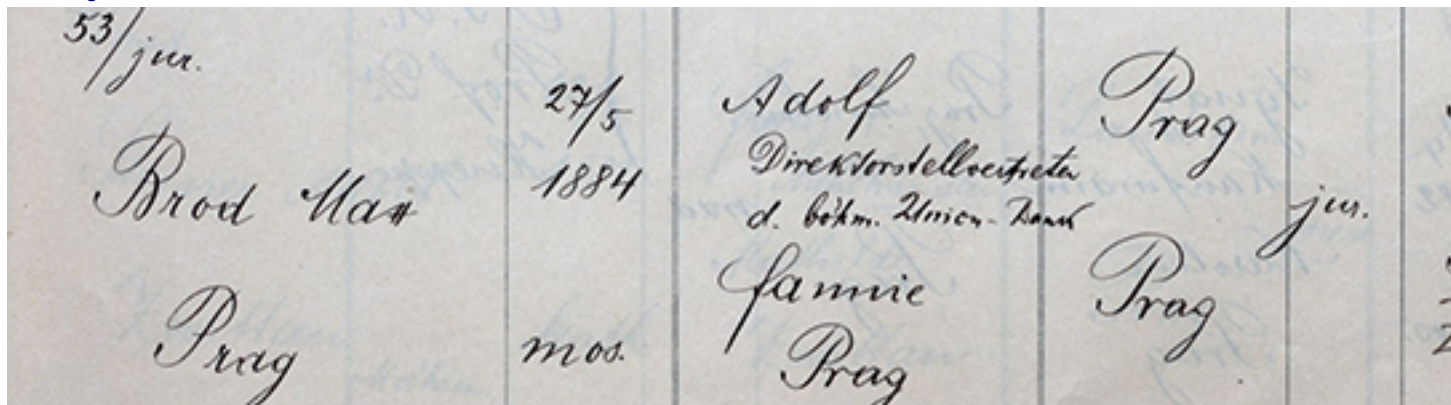 53/jur.
Brod Max
Prag
27/5
1884
mos.
Adolf
Direktorstellvertreter
d. böhm. Union-Bank
Fannie
Prag
Prag
Prag
jur.